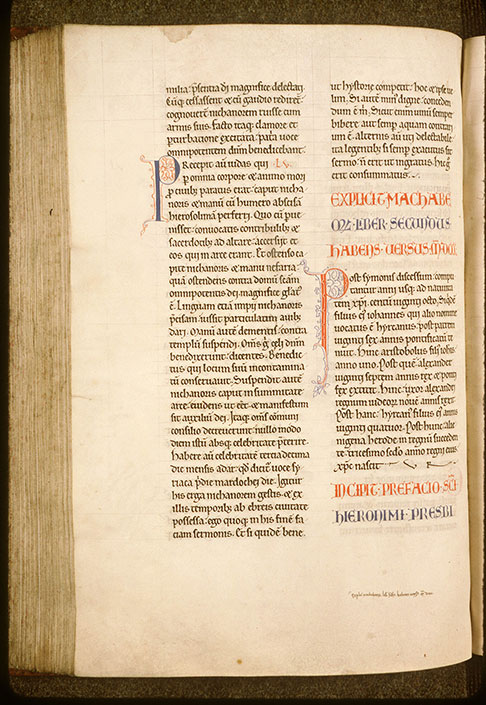 milia. psentia dj magnifice delectati
Cuq; cessassent & cu gaudio redirent
cognovert nichanorem ruisse cum
armis suis. facto itaq; clamore et
pturbatione excitata. patia voce
omnipotentem dnm benedicebant.
Precepit au iudas qui LX
p omnia corpore & animo mori
p civib; paratus erat. caput nicha
noris & manu cu humero abscisa
hierosolima pferri. Quo cu pve
nisset. convocatis contribulib; &
sacerdotib; ad altare. accersiit et
eos qui in arce erant. Et ostenso ca
pite nichanoris & manu nefaria.
qua ostendens contra domu scam
omnipotentis dej magnifice glat
e. Linguam etia impij nichanoris
pcisam. iussit particulatim avib;
dari. Manu aute dementis. contra
templu suspendi. Oms g celj dnm
benedixerunt. dicentes. Benedic
tus qui locum suu incontamina
tu conservavit. Suspendit aute
nichanoris caput in summitate
arcis. evidens ut eet & manifestum
sit auxilij dej. Itaq; oms comuni
consilio decreverunt. nullo modo
diem istu absq; celebritate pterire.
Habere au celebritate tercia decima
die mensis adar. qd dicit voce sy
riaca. pdie mardochej die. Igitur
his erga nichanorem gestis. & ex
illis temporib; ab ebreis civitate
possessa. ego quoq; in his fine fa
ciam sermonis. Et si quide bene.
ut hystorie competit. hoc & ipse ve
lim. Si aute min digne. conceden
dum e m. Sicut enim vinu semper
bibere aut semp aquam contrari
um e. alternis au uti delectabile.
ita legentib; si semp exactus sit
sermo. n erit ut ingratus. hic g
erit consummatus.
EXPLICIT MACHABE
ORUM LIBER SECUNDUS
HABENS VERSUS
Post symonis discessum. compu
tantur anni usq; ad nativita
tem xpi. centu viginti octo. Supe
filius ei iohannes qui alio nomine
vocatus e hyrcanus. post patrem
viginti sex annis pontificatu te
nuit. Hinc aristobolus filj iohis
anno uno. Post que alexander
viginti septem annis rex & ponti
fex extitit. Hinc uxor alexandri
regnum iudeor. nove annis rexit.
Post hanc. hyrcan filius ei annis
viginti quatuor. Post hunc alie
nigena herode in regnu succeden
te. tricesimo scdo anno regni eius
xpc nascit
INCIPIT PREFACIO SCI
HIERONIMI PRESBI